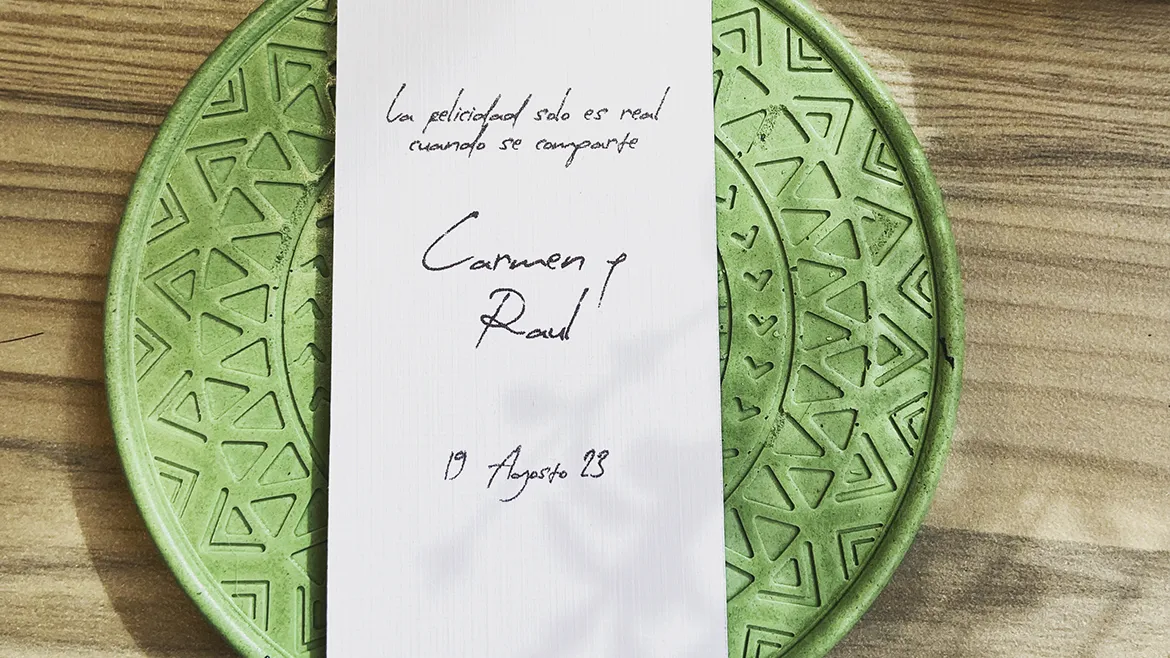 La felicidad solo es real
cuando se comparte
Carmen y
Raul
19 Agosto 23